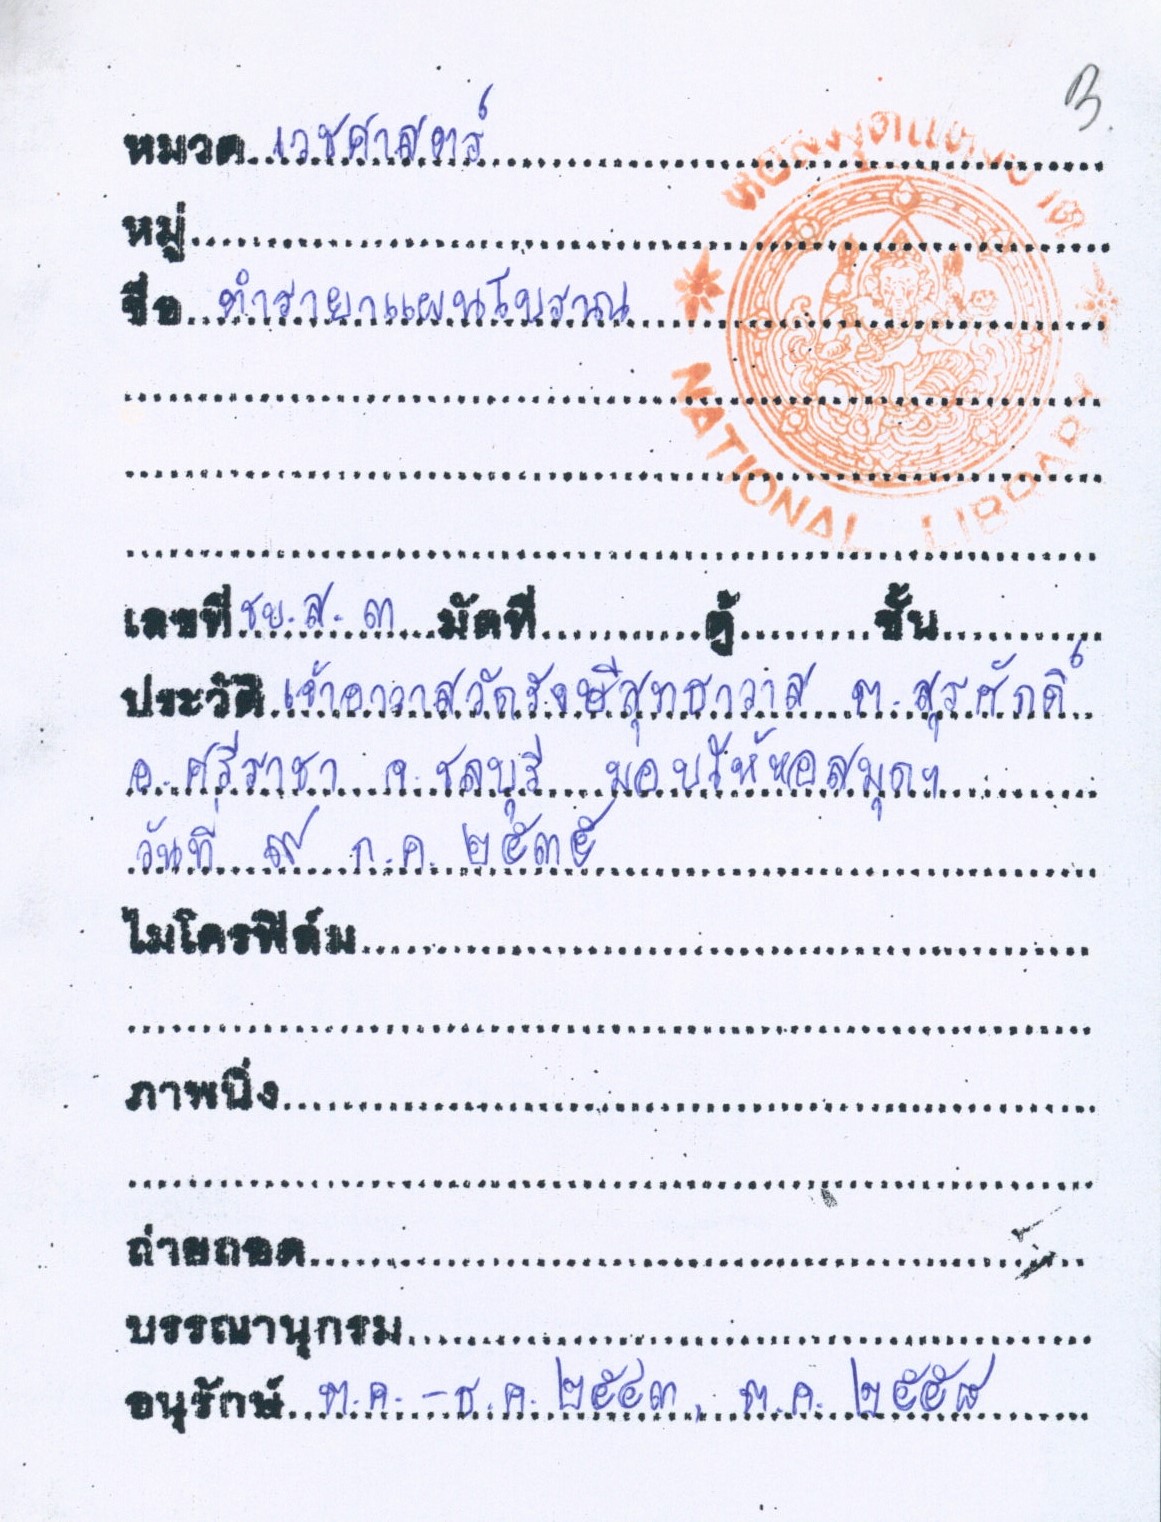 3
หอสมุดแห่งชาติ
หมวด เวชศาสตร์
หมู่
ชื่อ ตำรายาแผนโบราณ
NATIONAL LIBRARY
เลขที่ ชบ.ส. ๓ มัดที่ ตู้ ชั้น
ประวัติ เจ้าอาวาสวัดรังษีสุทธาวาส ต.สุรศักดิ์
อ.ศรีราชา จ.ชลบุรี มอบให้หอสมุดฯ
วันที่ ๙ ก.ค. ๒๕๓๕
ไมโครฟิล์ม
ภาพนิ่ง
ถ่ายถอด
บรรณานุกรม
อนุรักษ์ ต.ค. - ธ.ค. ๒๕๔๓, ต.ค. ๒๕๕๘